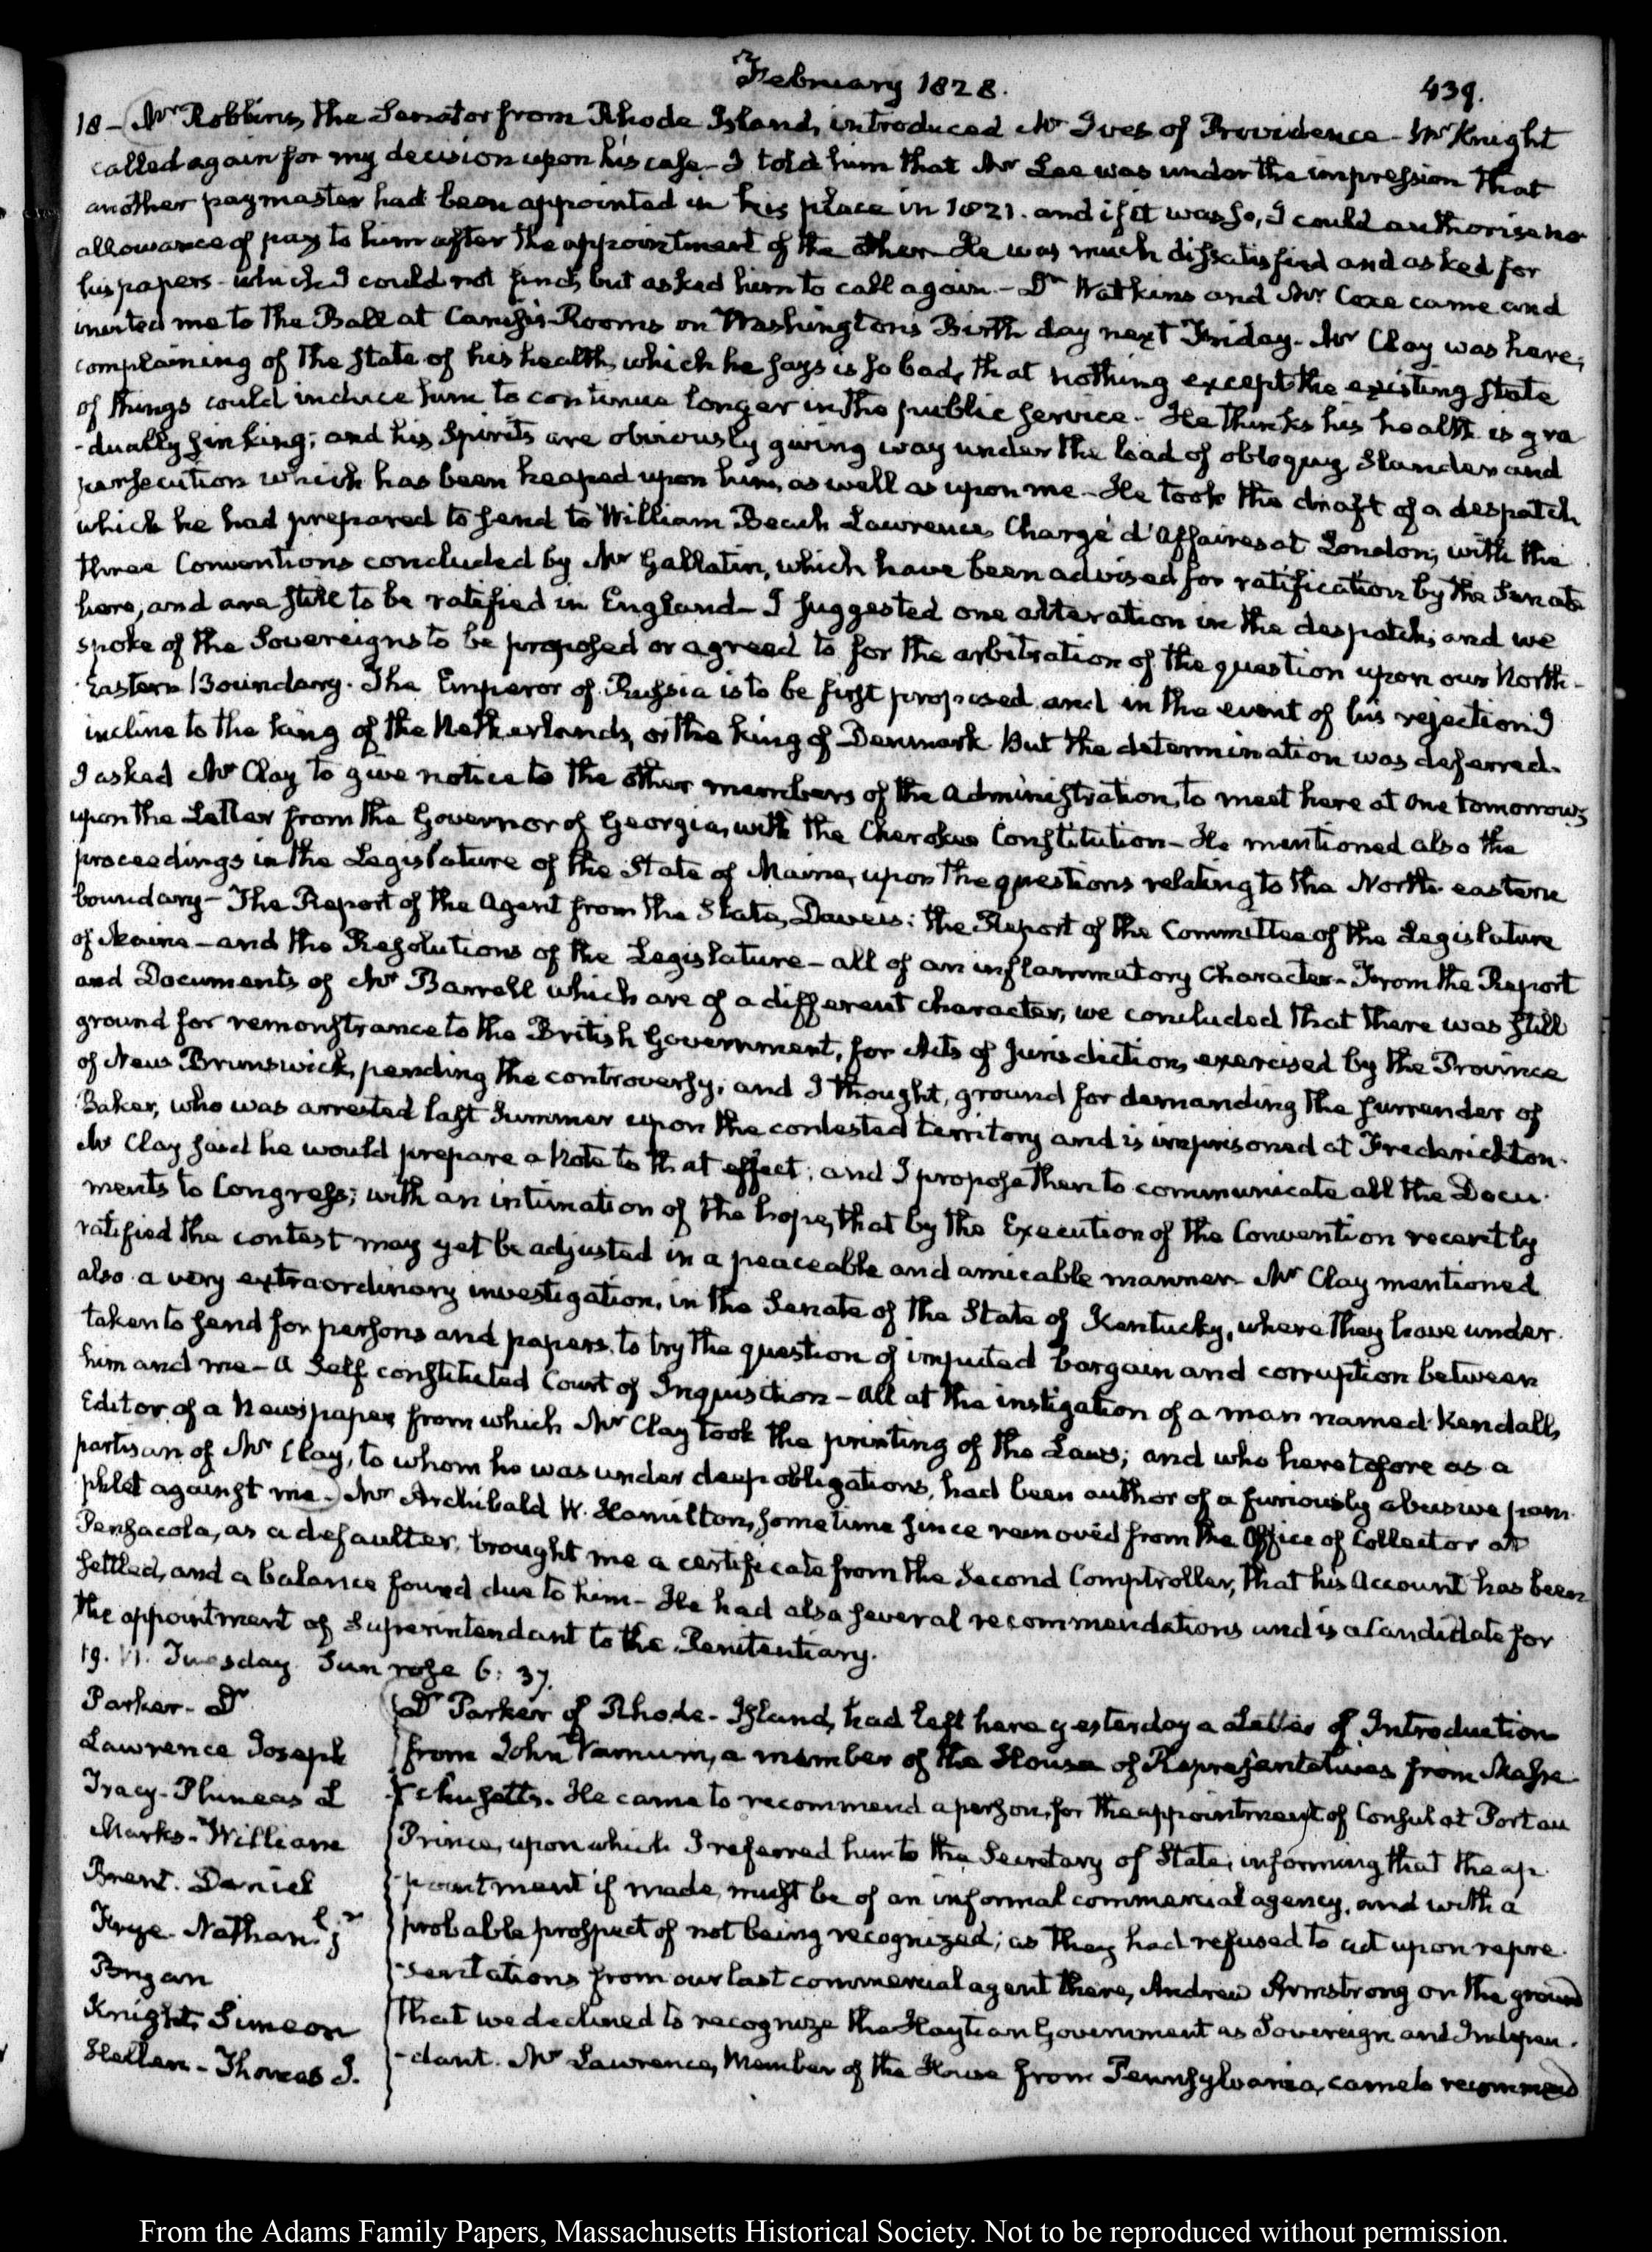 February 1828.
439.
18 - Mr Robbins, the Senator from Rhode Island, introduced Mr Ives of Providence - Mr Knight
called again for my decision upon his case - I told him that Mr Lee was under the impression that
another paymaster had been appointed in his place in 1821. and if it was so, I could authorise no
allowance of pay to him after the appointment of the other - He was much dissatisfied and asked for
his papers - which I could not find, but asked him to call again - Dr Watkins and Mr Coxe came and
invited me to the Ball at Carusi's Rooms on Washington's Birth day next Friday. Mr Clay was here;
complaining of the state of his health, which he says is so bad, that nothing except the existing state
of things could induce him to continue longer in the public service - He thinks his health is gra
-dually sinking; and his Spirits are obviously giving way under the load of obloquy, Slander and
persecution which has been heaped upon him, as well as upon me - He took the draft of a despatch
which he had prepared to send to William Beach Lawrence, Chargé d'Affaires at London, with the
three Conventions concluded by Mr Gallatin, which have been advised for ratification by the Senate
here, and are still to be ratified in England - I suggested one alteration in the despatch; and we
spoke of the Sovereigns to be proposed or agreed to for the arbitration of the question upon our North-
Eastern Boundary. The Emperor of Russia is to be first proposed and in the event of his rejection I
incline to the king of the Netherlands, or the king of Denmark. But the determination was deferred.
I asked Mr Clay to give notice to the other members of the Administration, to meet here at one tomorrow,
upon the Letter from the Governor of Georgia, with the Cherokee Constitution - He mentioned also the
proceedings in the Legislature of the State of Maine, upon the questions relating to the North-eastern
boundary - The Report of the Agent from the State, Daveis: the Report of the Committee of the Legislature
of Maine - and the Resolutions of the Legislature - all of an inflammatory Character - From the Report
and Documents of Mr Barrell which are of a different character, we concluded that there was still
ground for remonstrance to the British Government, for Acts of Jurisdiction, exercised by the Province
of New Brunswick, pending the controversy, and I thought, ground for demanding the surrender of
Baker, who was arrested last Summer upon the contested territory and is imprisoned at Frederickton.
Mr Clay said he would prepare a Note to that effect; and I propose then to communicate all the Docu-
ments to Congress; with an intimation of the hope, that by the Execution of the Convention recently
ratified the contest may yet be adjusted in a peaceable and amicable manner - Mr Clay mentioned
also a very extraordinary investigation, in the Senate of the State of Kentucky, where they have under-
taken to send for persons and papers, to try the question of imputed bargain and corruption between
him and me - a Self constituted Court of Inquisition - all at the instigation of a man named Kendall,
Editor of a Newspaper from which Mr Clay took the printing of the Laws; and who heretofore as a
partisan of Mr Clay, to whom he was under deep obligations, had been author of a furiously abusive pam-
phlet against me. Mr Archibald W. Hamilton, sometime since removed from the Office of Collector at
Pensacola, as a defaulter, brought me a certificate from the Second Comptroller, that his Account has been
settled, and a balance found due to him - He had also several recommendations and is a Candidate for
the appointment of Superintendant to the Penitentiary.
19. VI. Tuesday. Sun rose 6: 37.
Parker - Dr
Lawrence Joseph
Tracy - Phineas L
Marks - William
Brent. Daniel
Frye - Nathanl jr
Bryan
Knight, Simeon
Hellen - Thomas J.
Dr Parker of Rhode-Island, had left here yesterday a Letter of Introduction
from John Varnum, a member of the House of Representatives from Massa-
chusetts. He came to recommend a person, for the appointment of Consul at Port au
Prince, upon which I referred him to the Secretary of State, informing that the ap-
pointment if made, must be of an informal commercial agency, and with a
probable prospect of not being recognized; as they had refused to act upon repre-
-sentations from our last commercial agent there, Andrew Armstrong on the ground
that we declined to recognize the Haytian Government as Sovereign and Indepen-
-dant. Mr Lawrence, Member of the House from Pennsylvania, came to recommend
From the Adams Family Papers, Massachusetts Historical Society. Not to be reproduced without permission.